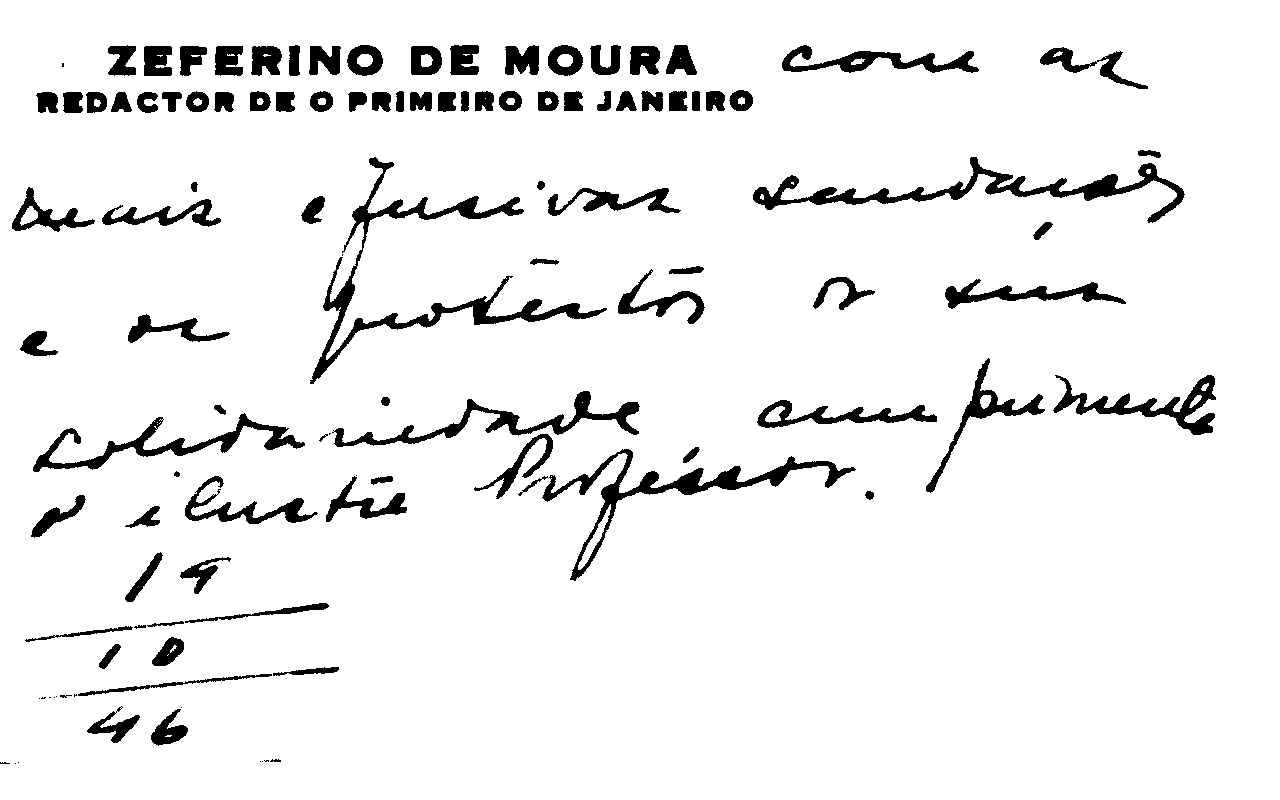 ZEFERINO DE MOURA com as
REDACTOR DE O PRIMEIRO DE JANEIRO
mais efusivas saudações
e os protestos d sua
solidariedade cumprimenta
o ilustre Professor.
19
10
46